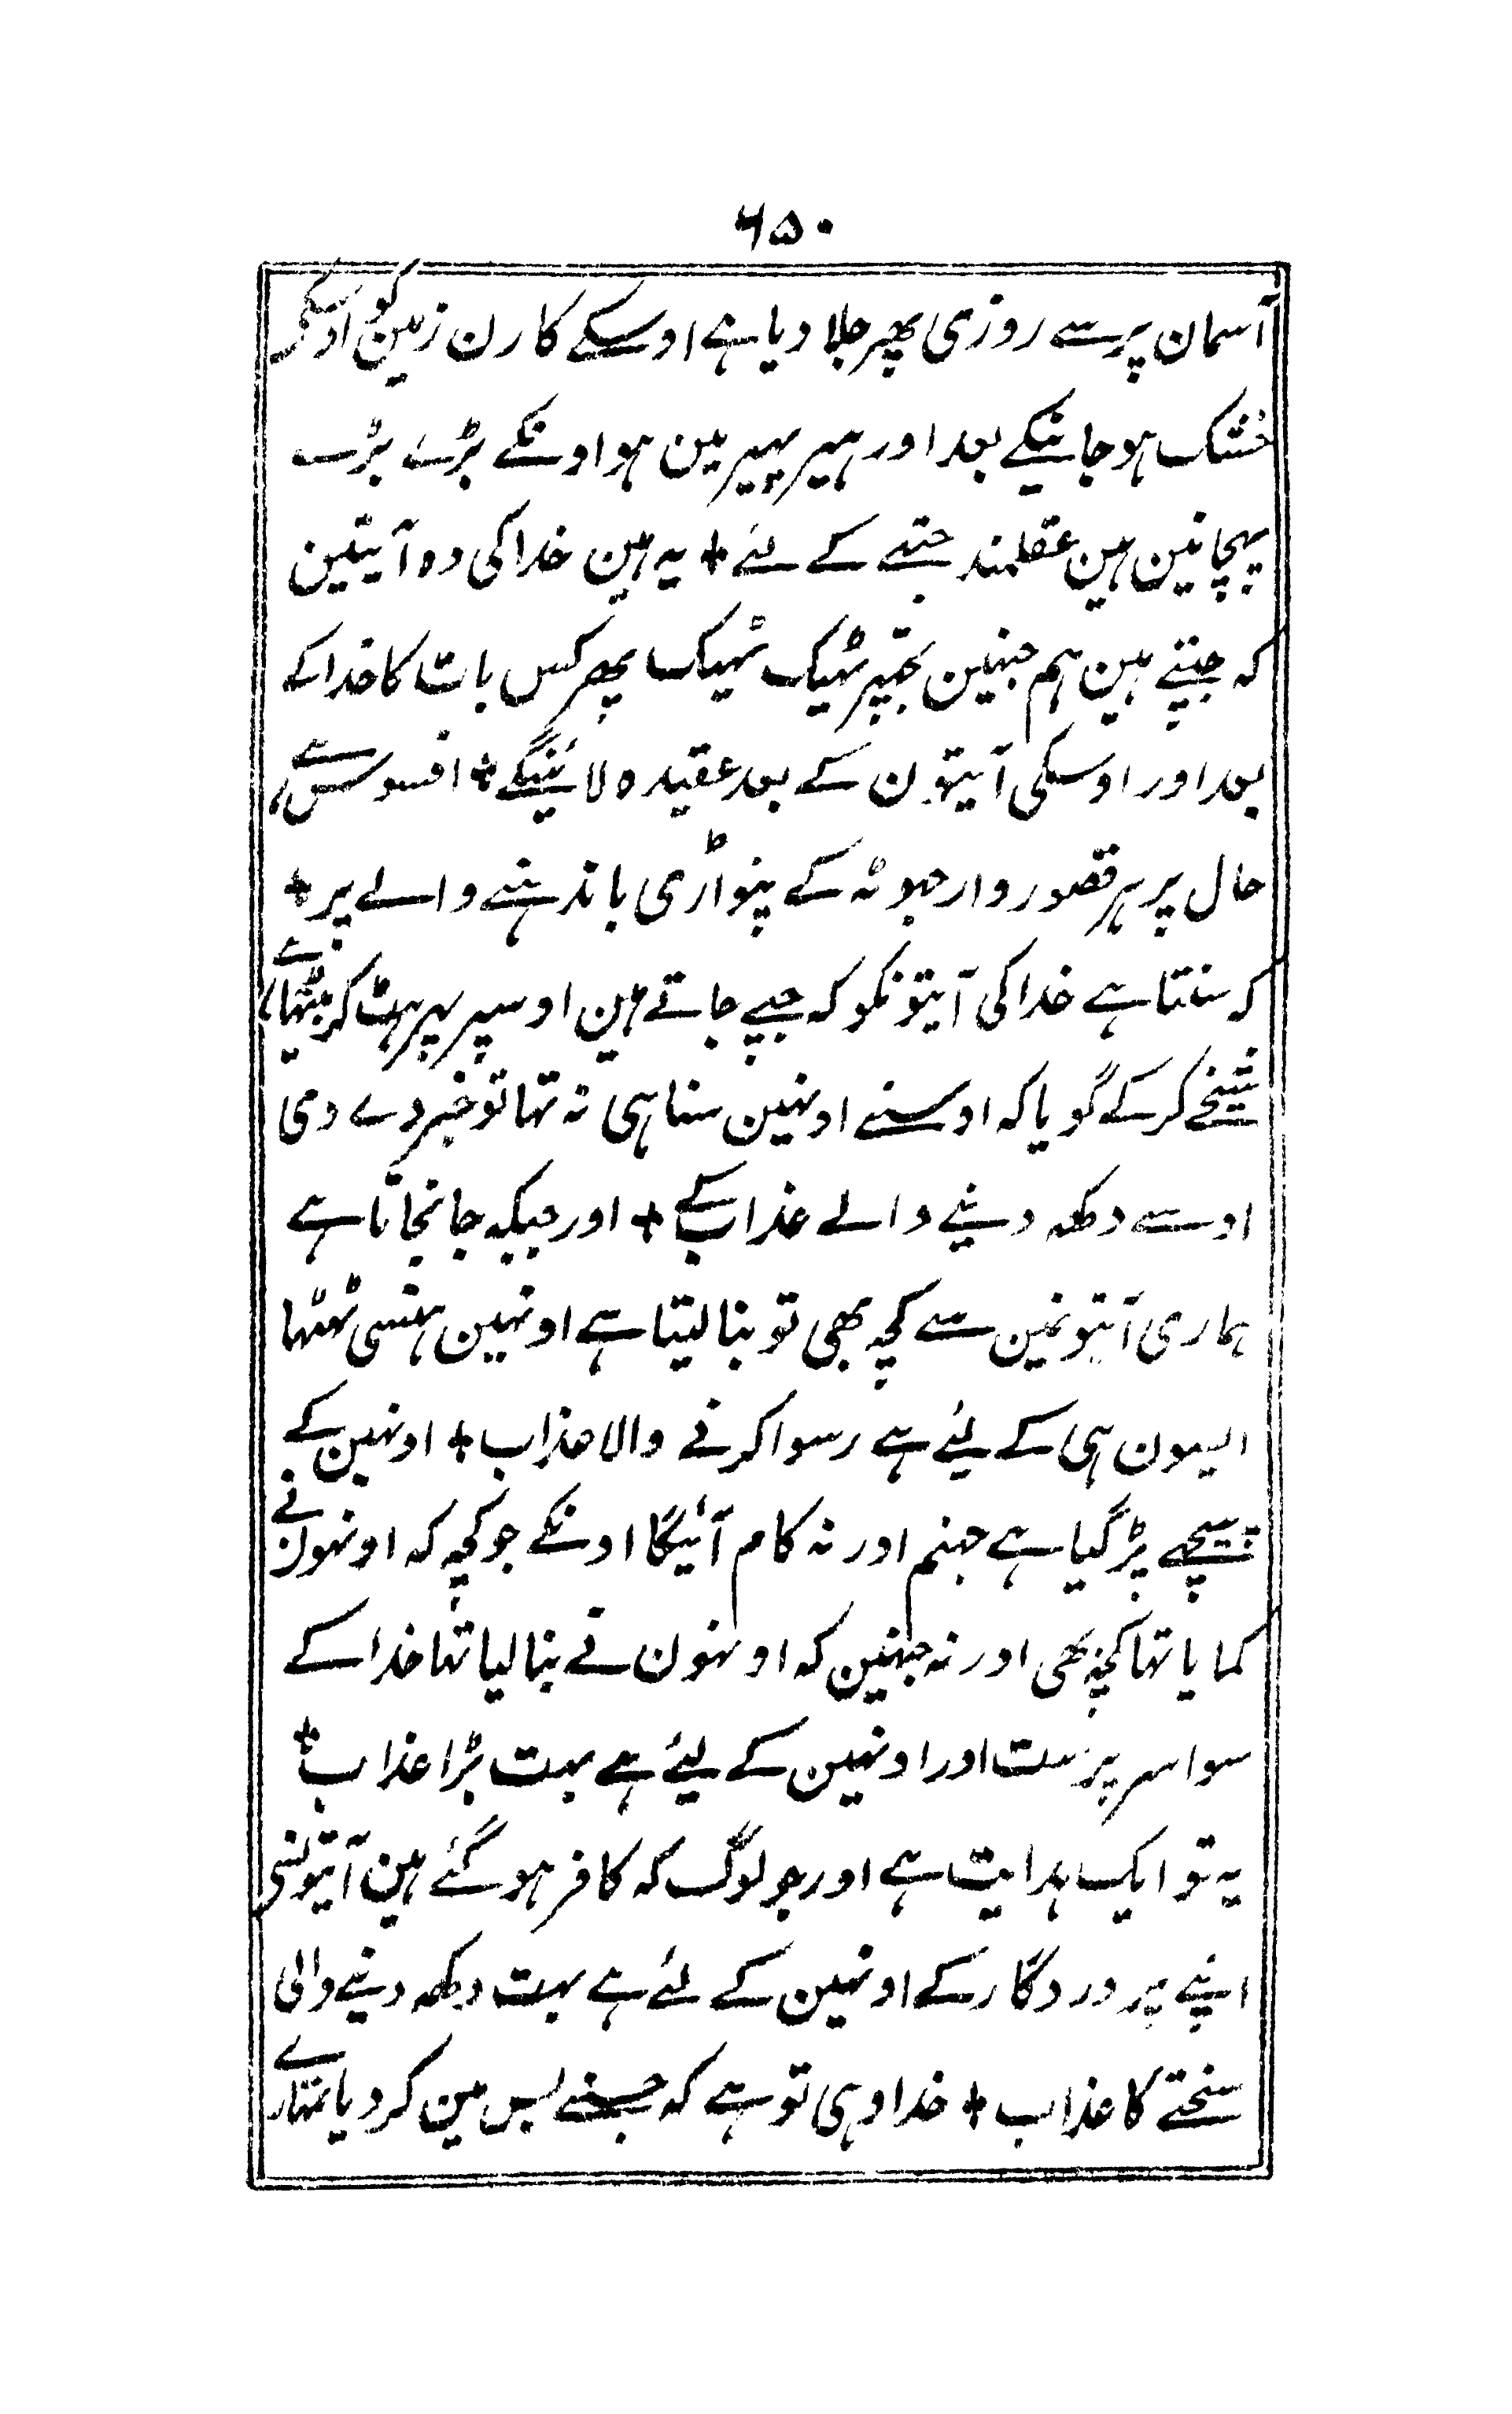 ۶۵۰
آسمان پر سے روزی پھر جلا دیا ہے اوسکے کارن زمین کو اوسکی
خشک ہو جانیکے بعد اور ہیر پھیر مین ہوا ونکے بڑے بڑے
پہچانین ہین عقلمند جتھے کے لئے + یہ ہین خدا کی وہ آیتین
کہ جپتے ہین ہم جنہین تجھپر ٹھیک ٹھیک پھر کس بات کا خدا کے
بعد اور اوسکی آیتون کے بعد عقیدہ لائینگے + افسوس ہے
حال پر ہر قصور وار جھوٹھ کے پنواڑی باندھنے والے پر +
کہ سنتا ہے خدا کی آیتونکو کہ جپے جاتے ہین اوسپر پھر ہٹ کر بیٹھا ہے
شیخے کر کے گویا کہ اوسنے اونہین سنا ہی نہ تھا تو خبر دے دی
اوسے دکھہ دینے والے عذاب کے + اور جبکہ جانجاتا ہے
ہماری آیتونمین سے کچھ بھی تو بنا لیتا ہے اونہین ہنسی ٹھٹھا
ایسون ہی کے لیئے ہے رسوا کرنے والا عذاب + اونہین کے
پیچھے پڑ گیا ہے جہنم اور نہ کام آئیگا اونکے جو کچھ کہ اونہون نے
کمایا تھا کچھ بھی اور نہ جنہین کہ اونہون نے بنا لیا تھا خدا کے
سوا سرپرست اور اونہین کے لیئے ہے بہت بڑا عذاب +
یہ تو ایک ہدایت ہے اور جو لوگ کہ کافر ہو گئے ہین آیتونسے
اپنے پروردگار کے اونہین کے لئے ہے بہت دکھہ دینے والی
سختے کا عذاب + خدا وہی تو ہے کہ جسنے بس مین کر دیا تمہارے